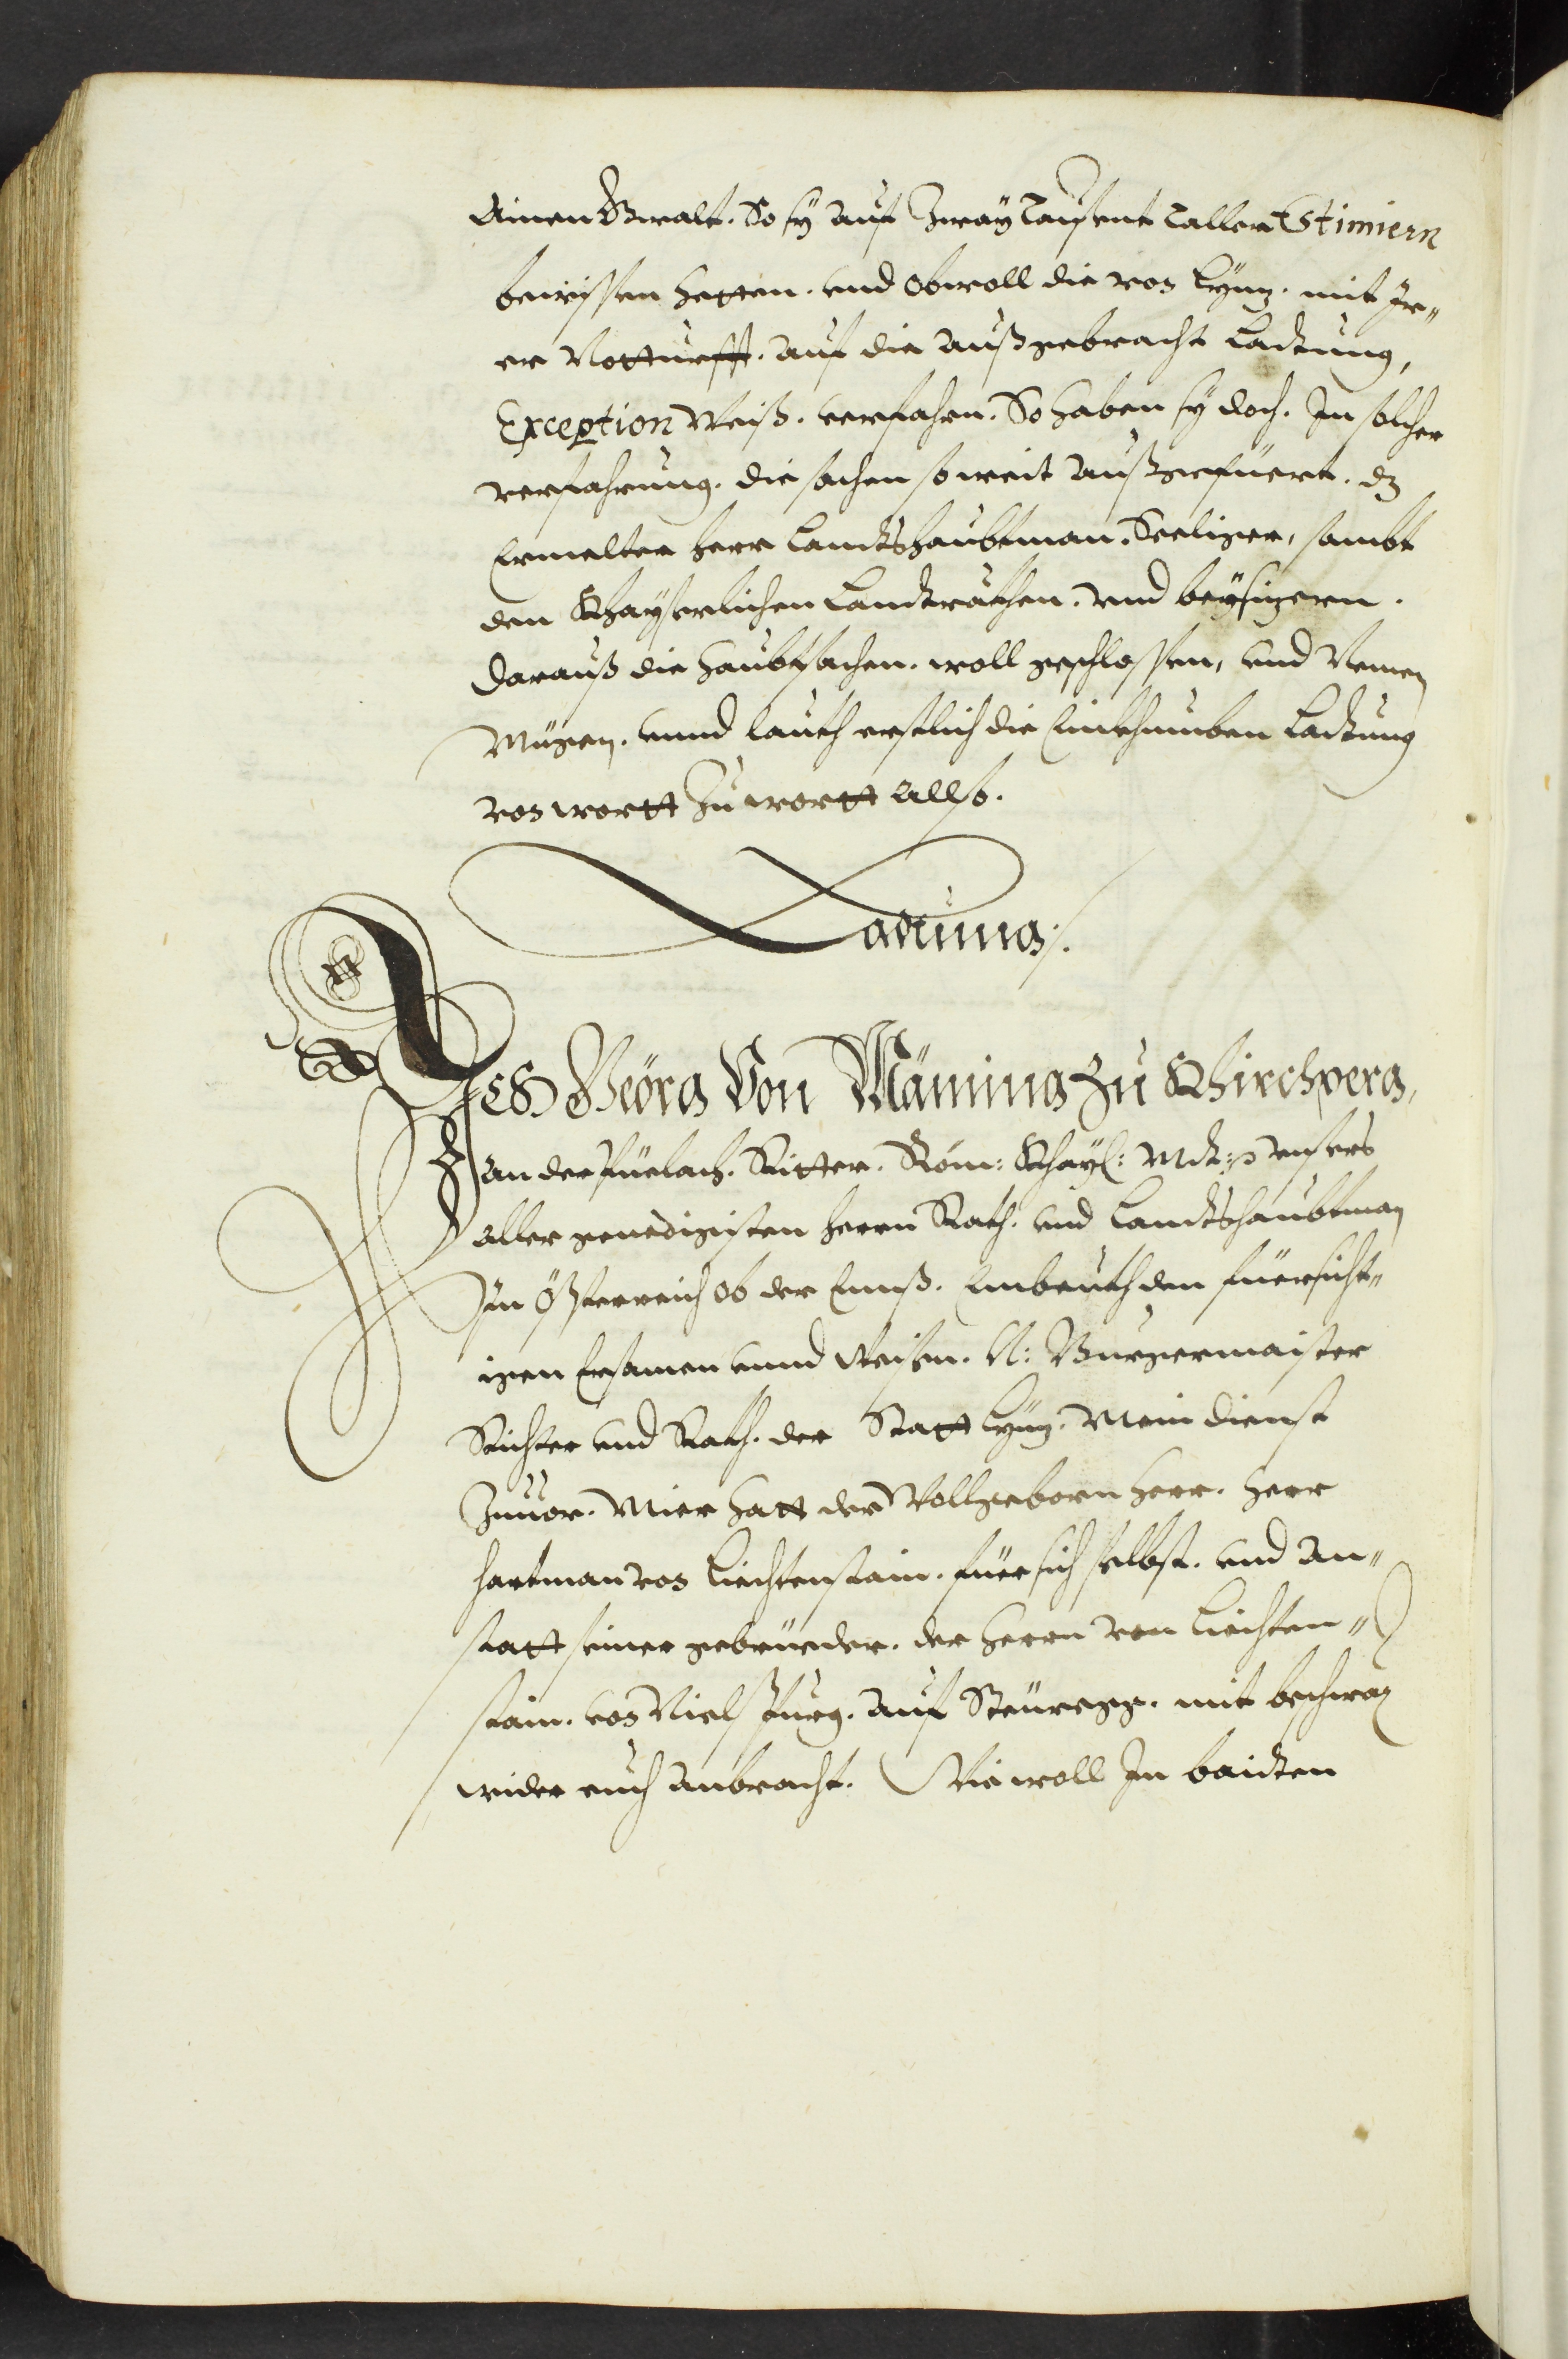 Ainen Gwalt. So sy auf Zway Tausent Taller Estimiern
bewissen hetten. und obwoll die von Lynz. mit Jr„
er Notturfft. auf die außgebracht Ladung,
Exception Weiß. verfahrn. So haben sy doch. In solcher
verfahrung. die sachen so weit außgefüert. dz
Ermelter herr Landtshaubtman. Seeliger, sambt
den Khayserlichen Landträthen. und beysizern.
darauß die haubtsachen. woll geschlossen, und Nemen
Mügen. unnd lauth erstlich die Einkhumben Ladung
von wortt Zu wortt Allso.
Ladung/.
Ich Geörg Von Mäming Zu Khirchperg,
an der Püelach. Ritter. Röm: Khayl: Mdt: unsers
aller genedigisten herrn Rath. und Landtshaubtman
In Össterreich ob der Ennß. Embeuth den fürsicht„
igen Ersamen unnd Weisen. N: Burgermaister
Richter und Rath. der Statt Lynz. Mein dienst
Zuuor. Mier hatt der Wollgeborn herr. herr
hartman von Liechtenstain. für sich selbst. und An„
statt seiner gebrüeder. der herrn von Liechten„
stain. von Niclspurg. auf Steüregg. mit beschwär
wider euch anbracht. Wie woll In baiden